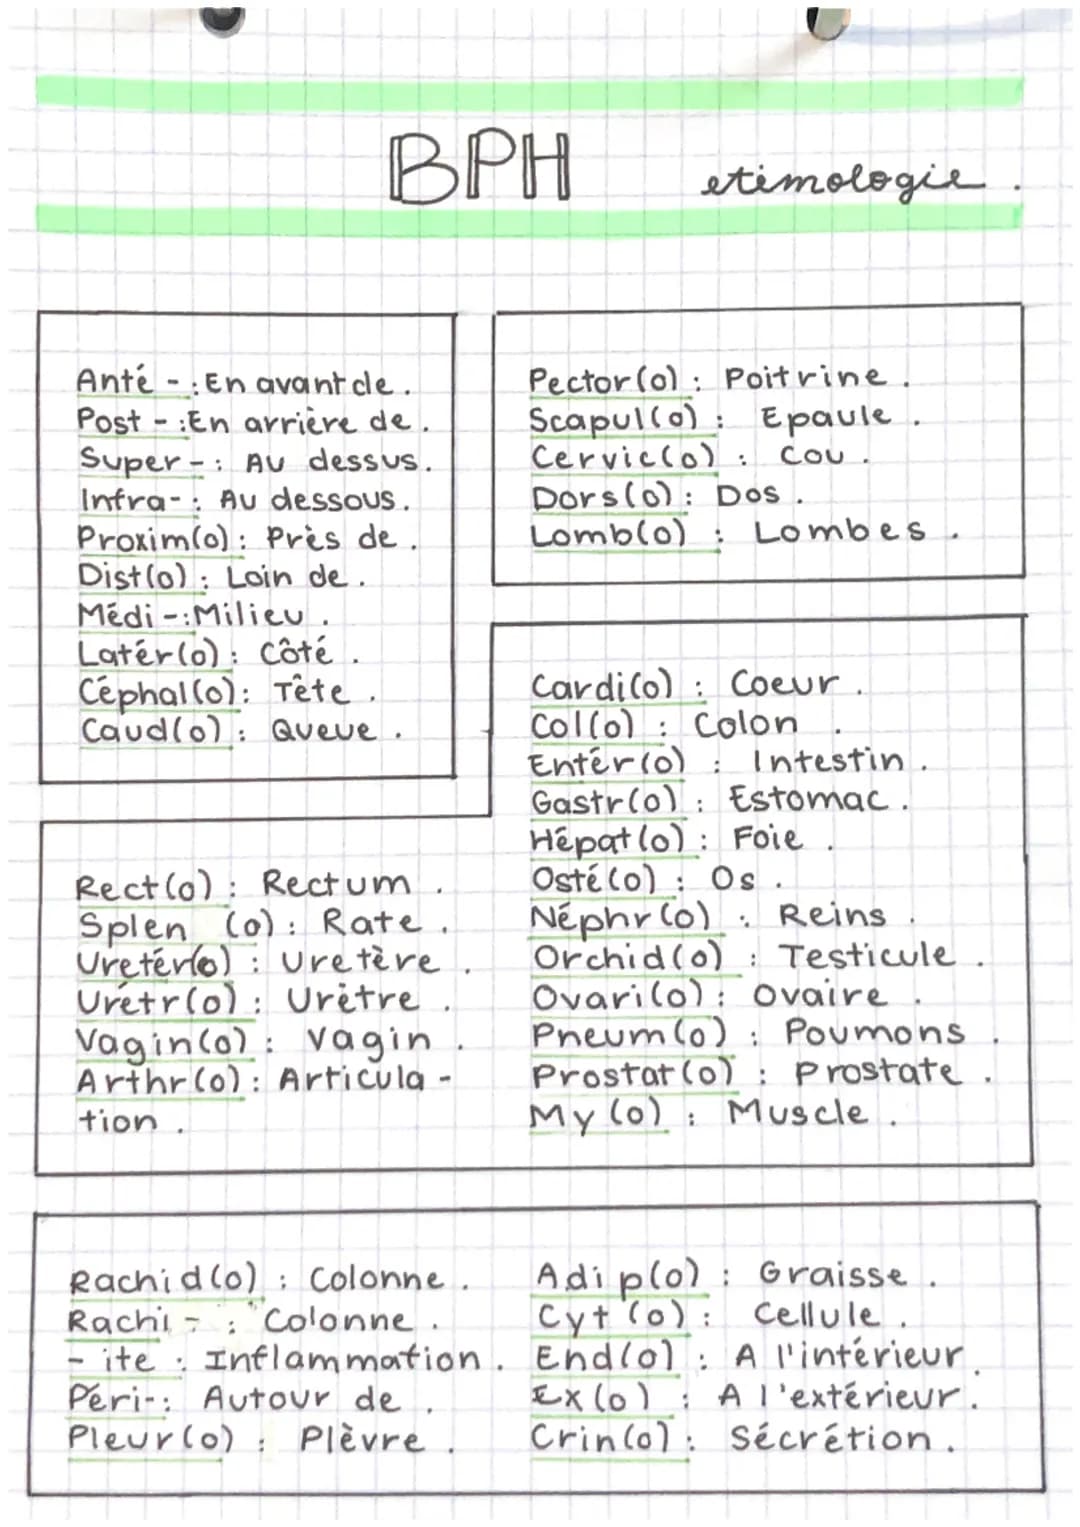 BPH etimologie.
Anté - : En avant de.
Post - : En arrière de.
Super - : Au dessus.
Infra - : Au dessous.
Proxim(o) : Près de.
Dist(o) : Loin de.
Médi - : Milieu.
Latér(o) : Côté.
Céphal(o) : Tête.
Caud(o) : Queue.
Pector(o) : Poitrine.
Scapul(o) : Epaule.
Cervic(o) : Cou.
Dors(o) : Dos.
Lomb(o) : Lombes.
Rect(o) : Rectum.
Splen (o) : Rate.
Uretér(o) : Uretère.
Urétr(o) : Urètre.
Vagin(o) : Vagin.
Arthr(o) : Articula -
tion.
Cardi(o) : Coeur.
Col(o) : Colon.
Entér(o) : Intestin.
Gastr(o) : Estomac.
Hépat(o) : Foie.
Osté(o) : Os.
Néphr(o) : Reins.
Orchid(o) : Testicule.
Ovari(o) : Ovaire.
Pneum(o) : Poumons.
Prostat(o) : Prostate.
My(o) : Muscle.
Rachid(o) : Colonne.
Rachi - : Colonne.
- ite : Inflammation.
Péri- : Autour de.
Pleur(o) : Plèvre.
Adip(o) : Graisse.
Cyt(o) : Cellule.
End(o) : A l'intérieur.
Ex(o) : A l'extérieur.
Crin(o) : Sécrétion.